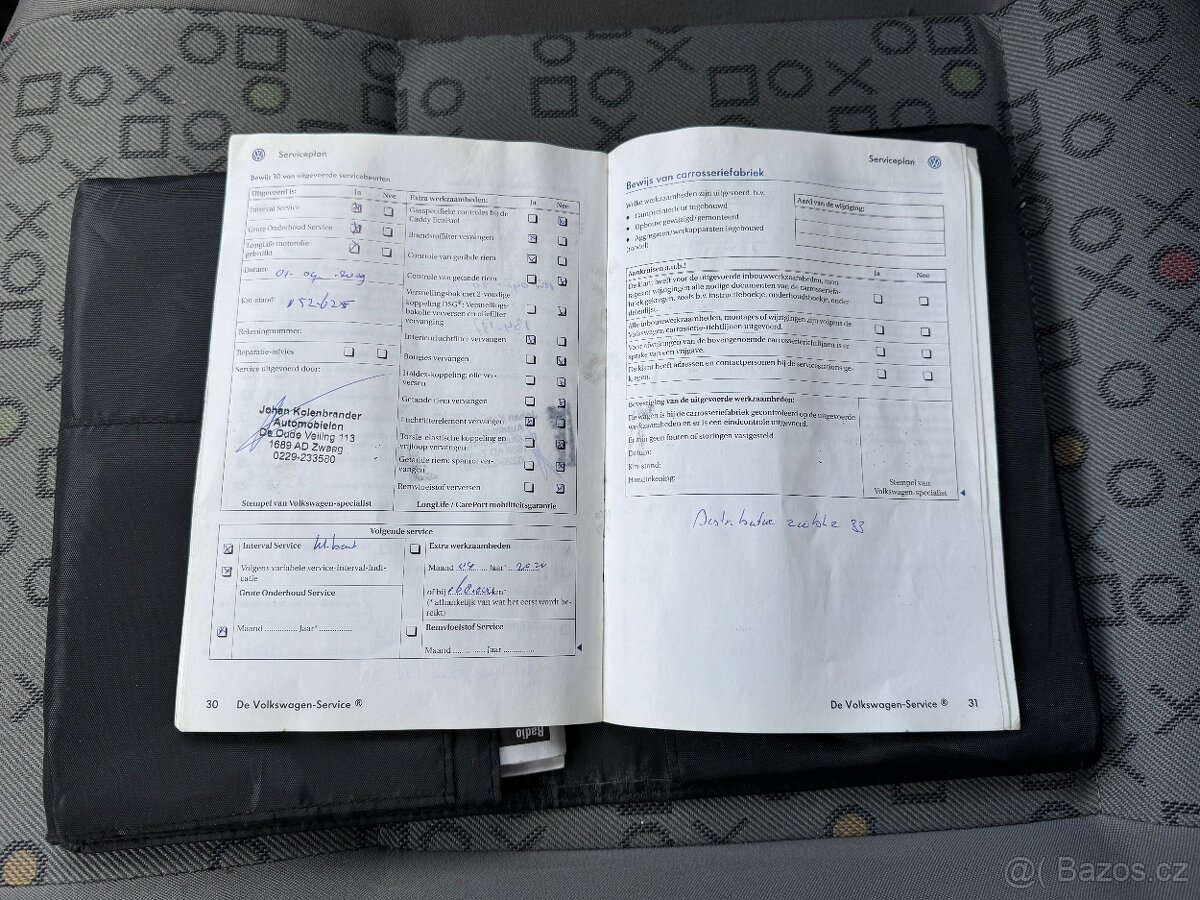 Serviceplan
Bewijs 10 van uitgevoerde servicebeurten
Uitgevoerd is:
Ja
Nee
Interval Service
Grote Onderhoud Service
LongLife motorolie
gebruikt
Datum:
Km-stand:
152.625
Rekeningnummer:
Reparatie-advies
Service uitgevoerd door:
Johan Kolenbrander
Automobielen
De Oude Veiling 113
1689 AD Zwaag
0229-233580
Stempel van Volkswagen-specialist
Extra werkzaamheden:
Ja
Nee
Gasspecifieke controles bij de
Caddy EcoFuel
Brandstoffilter vervangen
Controle van geribde riem
Controle van getande riem
Versnellingsbak met 2-voudige
koppeling DSG®: Versnellings-
bakolie verversen en oliefilter
vervanging
Interieurluchtfilter vervangen
Bougies vervangen
Haldex-koppeling: olie ver-
versen
Getande riem vervangen
Luchtfilterelement vervangen
Torsie-elastische koppeling en
vrijloop vervangen
Getande riem: spanrol ver-
vangen
Remvloeistof verversen
LongLife / CarePort mobiliteitsgarantie
Volgende service
Interval Service
Volgens variabele service-interval-indi-
catie
Grote Onderhoud Service
Maand ........ Jaar* ............
Extra werkzaamheden
Maand 04 Jaar* 2020
of bij km*
(* afhankelijk van wat het eerst wordt be-
reikt)
Remvloeistof Service
Maand ........ Jaar ............
30 De Volkswagen-Service ®
Serviceplan
Bewijs van carrosseriefabriek
Welke werkzaamheden zijn uitgevoerd, b.v.
• Camperinterieur ingebouwd
• Opbouw gewijzigd/gemonteerd
• Aggregaten/werkapparaten ingebouwd
(model)
Aard van de wijziging:
Aankruisen a.u.b.!
Ja
Nee
De klant heeft voor de uitgevoerde inbouwwerkzaamheden, mon-
tages of wijzigingen alle nodige documenten van de carrosseriefa-
briek gekregen, zoals b.v. instructieboekje, onderhoudsboekje, onder-
delenlijst.
Alle inbouwwerkzaamheden, montages of wijzigingen zijn volgens de
Volkswagen carrosserie-richtlijnen uitgevoerd.
Voor afwijkingen van de bovengenoemde carrosserierichtlijnen is er
sprake van een vrijgave.
De klant heeft adressen en contactpersonen bij de servicestations ge-
kregen.
Bevestiging van de uitgevoerde werkzaamheden:
De wagen is bij de carrosseriefabriek gecontroleerd op de uitgevoerde
werkzaamheden en er is een eindcontrole uitgevoerd.
Er zijn geen fouten of storingen vastgesteld
Datum:
Km-stand:
Handtekening:
Stempel van
Volkswagen-specialist
33
De Volkswagen-Service ® 31
Radio
@( Bazos.cz